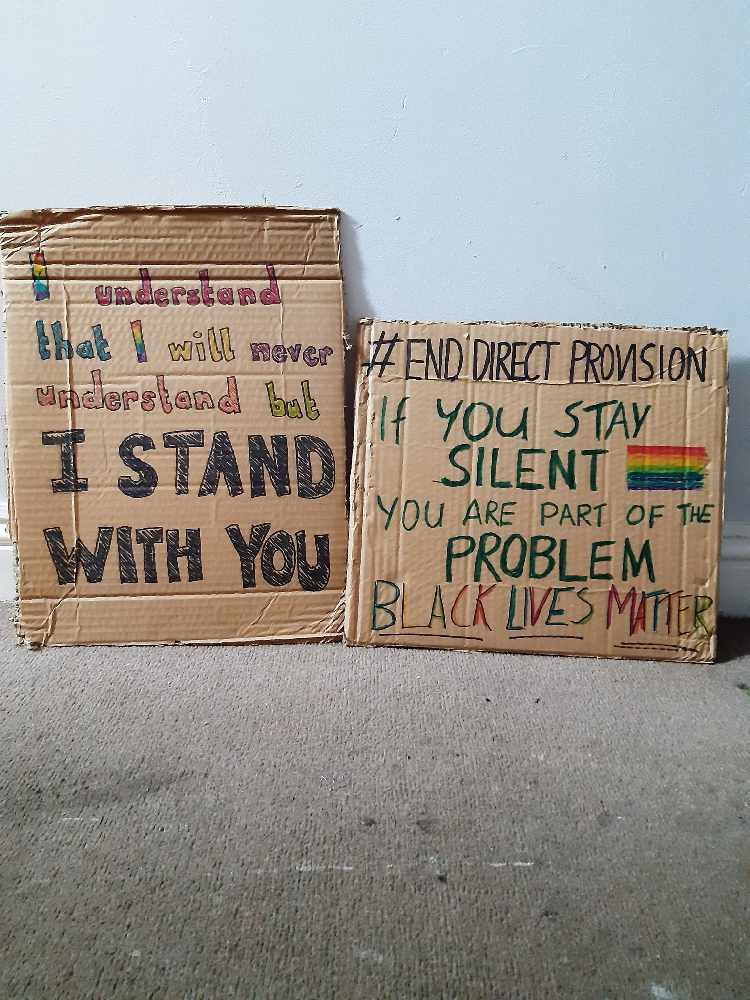 I understand
that I will never
understand but
I STAND
WITH YOU
#END DIRECT PROVISION
If YOU STAY
SILENT
YOU ARE PART OF THE
PROBLEM
BLACK LIVES MATTER